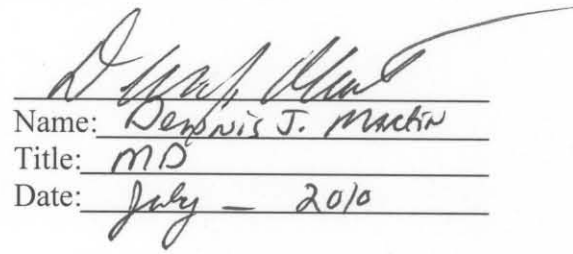 Name: Dennis J. Martin
Title: MD
Date: July – 2010